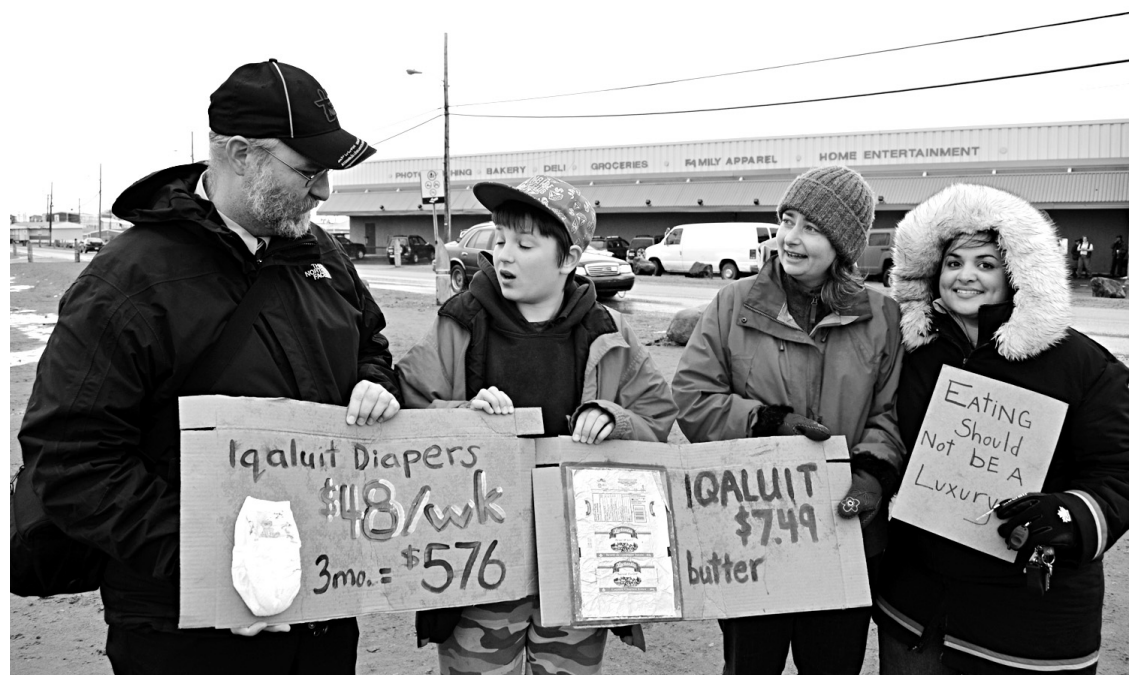 PHOTO
BAKERY
DELI
GROCERIES
FAMILY APPAREL
HOME ENTERTAINMENT
THE
NORTH
FACE
Iqaluit Diapers
$48/wk
3mo. = $576
IQALUIT
$7.49
butter
EATING
Should
Not bE A
Luxury